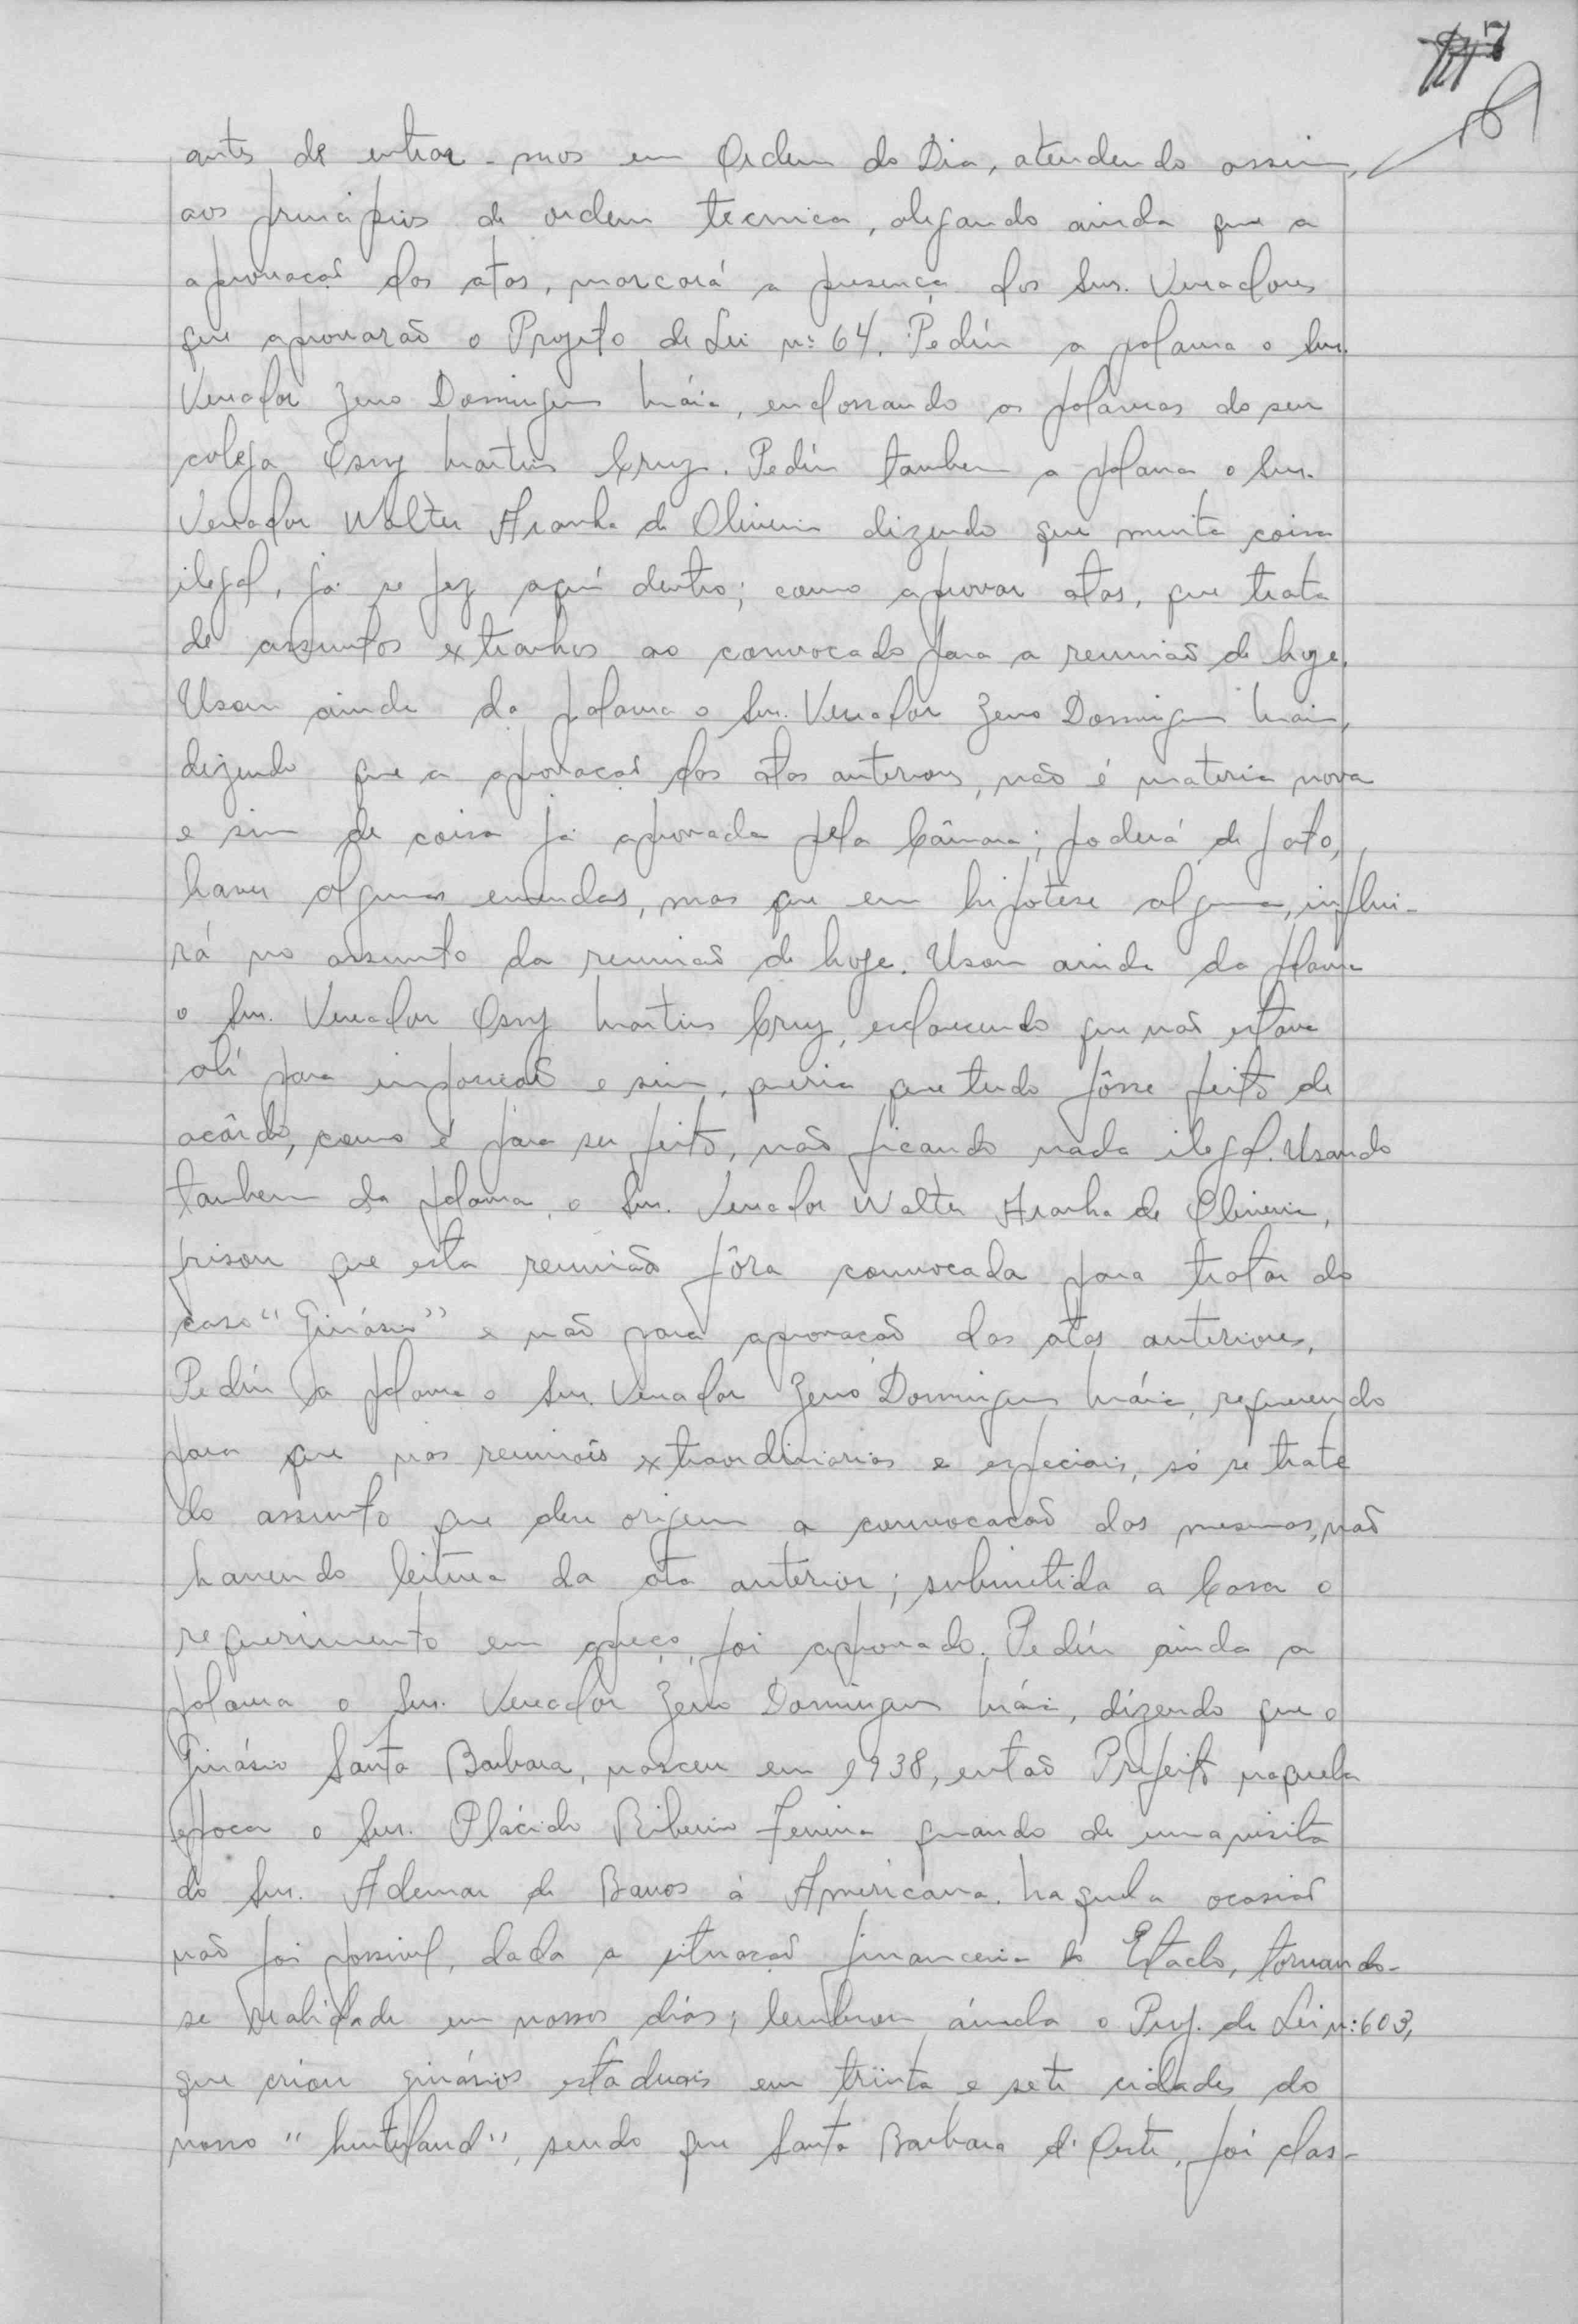 7
antes de entrar-mos em Ordem do Dia, atendendo assim,
aos principios de ordem tecnica, alegando ainda que a
aprovação das atas, marcará a presença dos Snrs. Vereadores
que aprovarão o Projeto de Lei nº 64. Pediu a palavra o Snr.
Vereador Zeno Domingues Máia, endossando as palavras do seu
colega Osny Martins Cruz. Pediu tambem a palavra o Snr.
Vereador Walter Aranha de Oliveira dizendo que muita coisa
ilegal, já se fez aquí dentro; como aprovar atas, que trata
de assuntos extranhos ao convocado para a reunião de hoje.
Usou ainda da palavra o Snr. Vereador Zeno Domingues Maia,
dizendo que a aprovação das atas anteriores, não é materia nova
e sim de coisa já aprovada pela Câmara; poderá de fato,
haver algumas emendas, mas que em hipotese alguma, influi-
rá no assunto da reunião de hoje. Usou ainda da palavra
o Snr. Vereador Osny Martins Cruz, esclarecendo que não estava
alí para imposição e sim, queria que tudo fôsse feito de
acôrdo, como é para ser feito, não ficando nada ilegal. Usando
tambem da palavra, o Snr. Vereador Walter Aranha de Oliveira,
frisou que esta reunião fôra convocada para tratar do
caso "Ginásio" e não para aprovação das atas anteriores.
Pediu a palavra o Snr. Vereador Zeno Domingues Máia, requerendo
para que nas reuniões extraordinarias e especiais, só se trate
do assunto que deu origem a convocação das mesmas, não
havendo leitura da ata anterior; submetida a Casa o
requerimento em apreço, foi aprovado. Pediu ainda a
palavra o Snr. Vereador Zeno Domingues Máia, dizendo que o
Ginásio Santa Barbara, nasceu em 1938, então Prefeito naquela
epoca o Snr. Plácido Ribeiro Ferreira quando de uma visita
do Snr. Ademar de Barros á Americana. Naquela ocasião
não foi possivel, dada a situação financeira do Estado, tornando-
se realidade em nossos dias; lembrou ainda o Proj. de Lei nº 603,
que criou ginásios estaduais em trinta e sete cidades do
nosso "hinterland", sendo que Santa Barbara d'Oeste, foi clas-